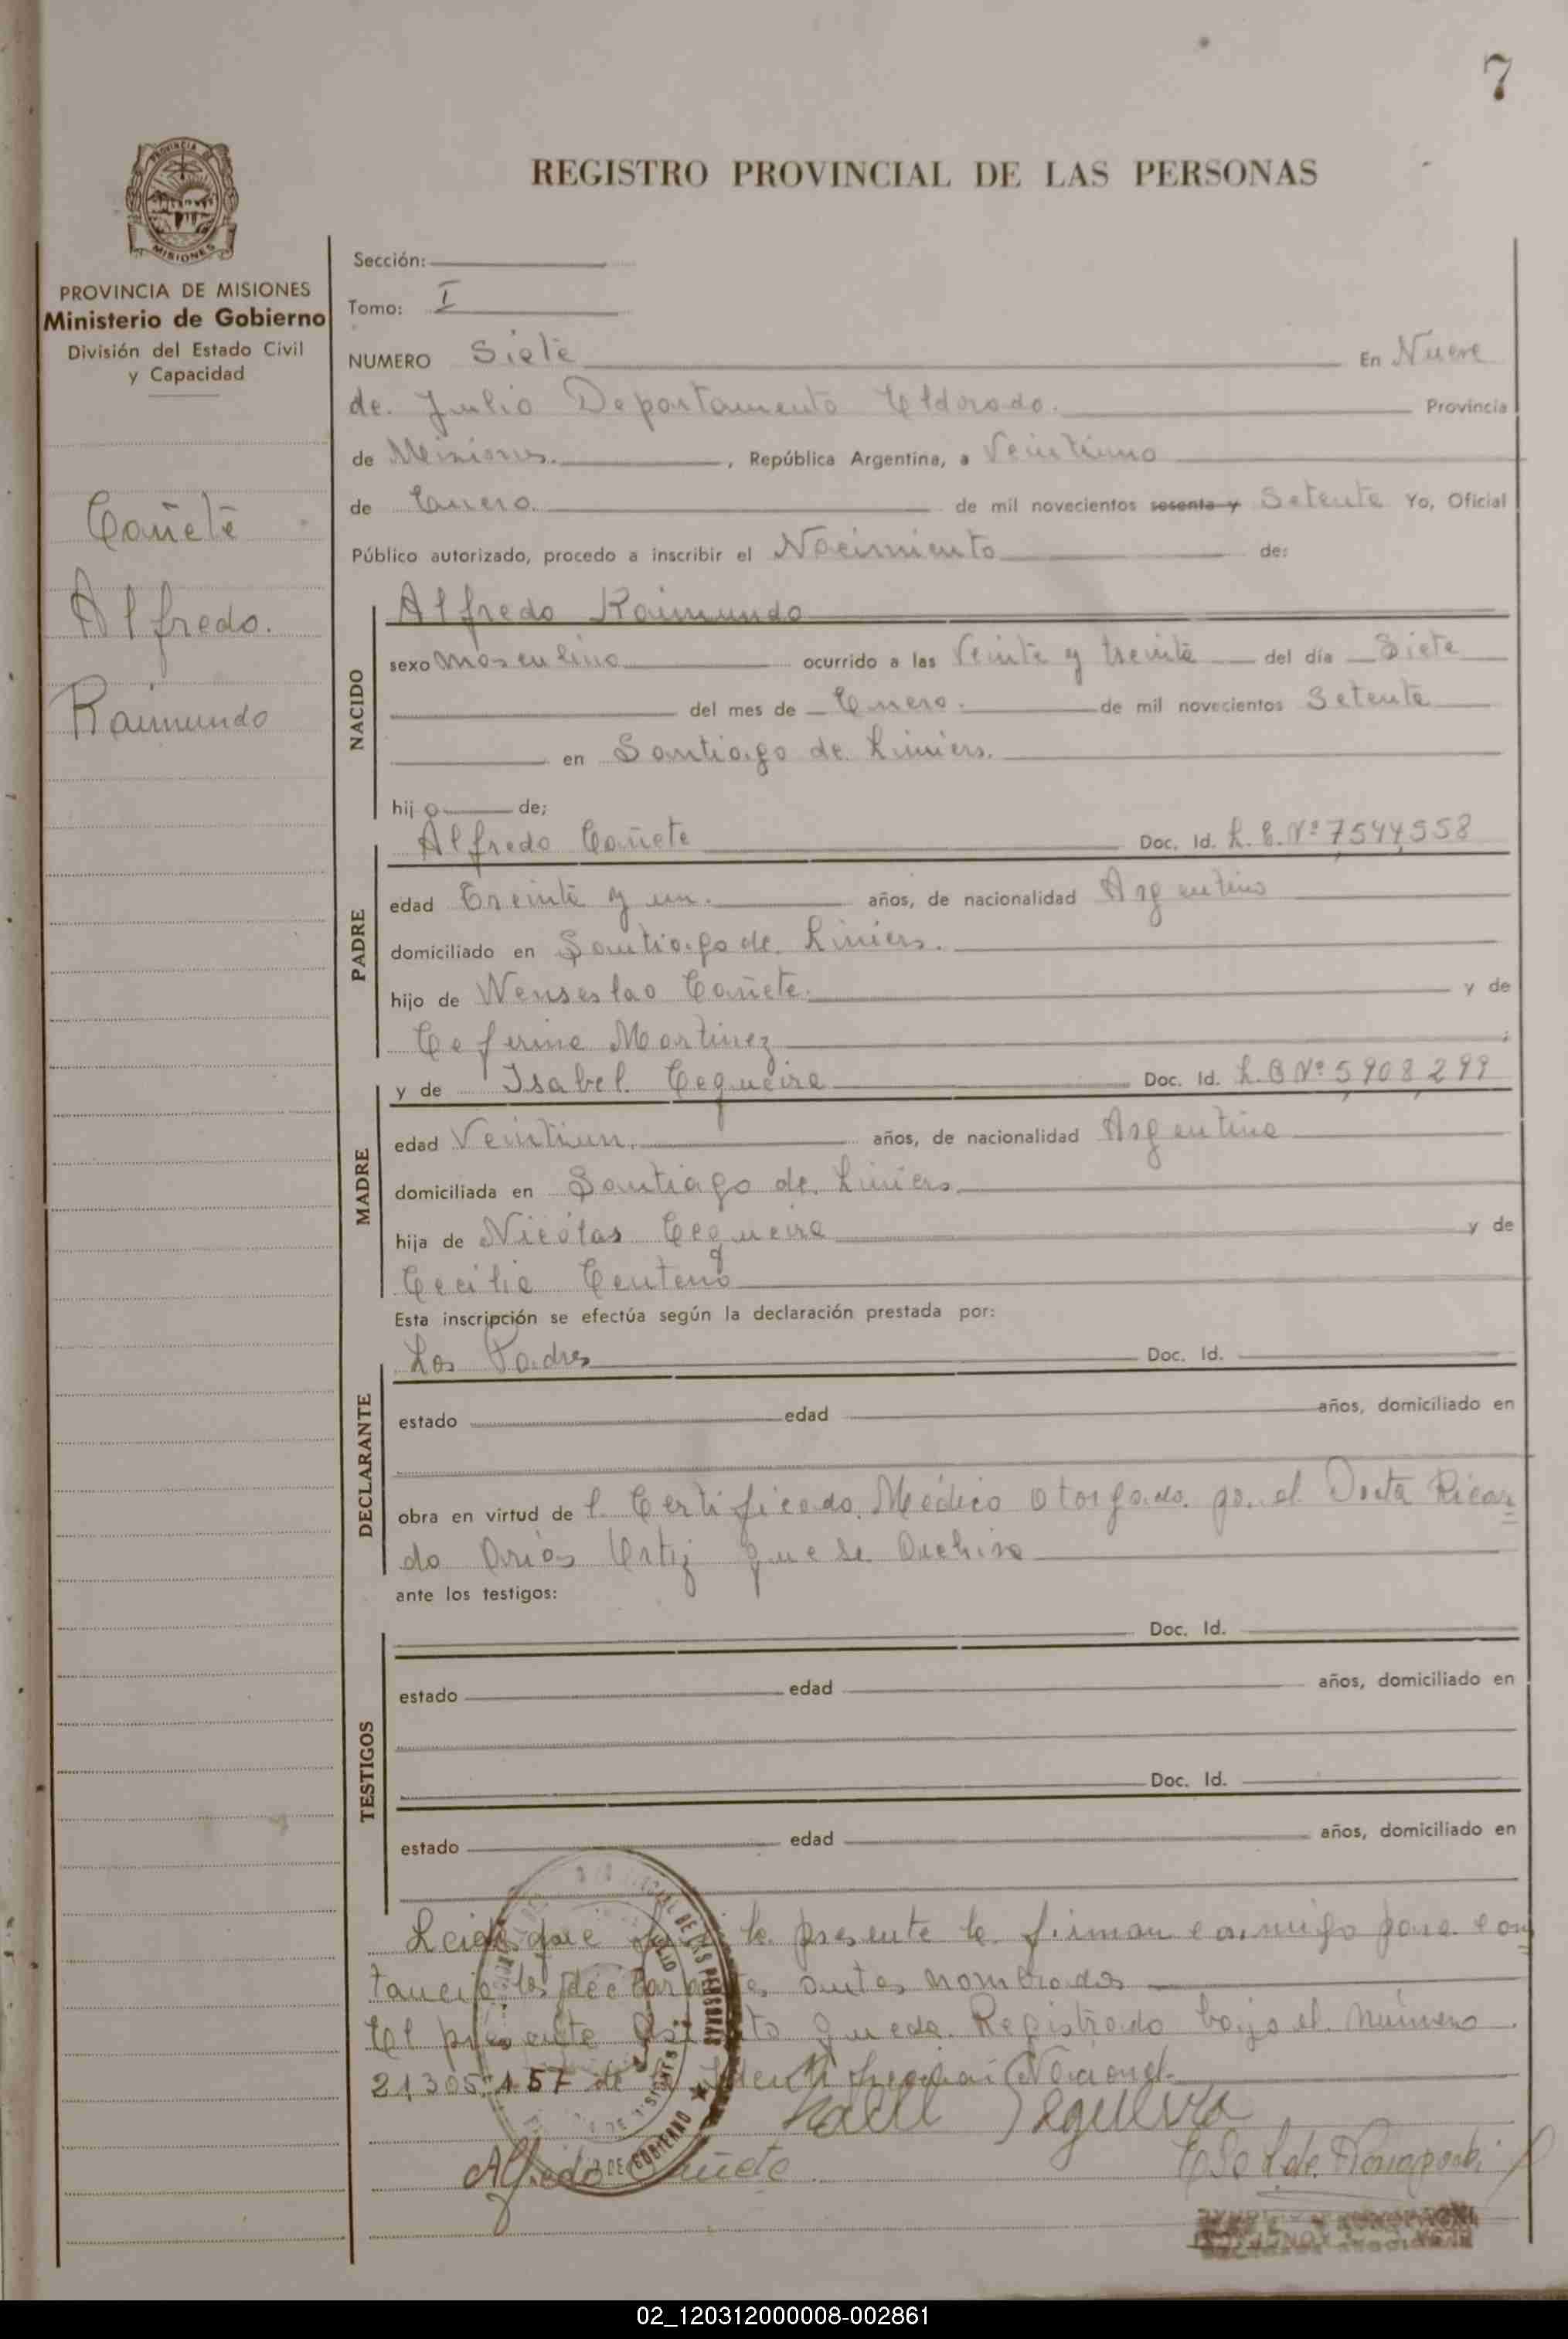 7
REGISTRO PROVINCIAL DE LAS PERSONAS
PROVINCIA DE
MISIONES
PROVINCIA DE MISIONES
Ministerio de Gobierno
División del Estado Civil
y Capacidad
Cañete
Alfredo.
Raimundo
Sección:
Tomo: I
NUMERO Siete En Nueve
de Julio Departamento Eldorado. Provincia
de Misiones. , República Argentina, a Veintiuno
de Enero. de mil novecientos sesenta y Setenta Yo, Oficial
Público autorizado, procedo a inscribir el Nacimiento de:
NACIDO
Alfredo Raimundo
sexo masculino ocurrido a las Veinte y treinta del día Siete
del mes de Enero. de mil novecientos Setenta
en Santiago de Liniers.
hijo de;
PADRE
Alfredo Cañete Doc. Id. L.E. Nº 7,544,558
edad Treinta y un. años, de nacionalidad Argentino
domiciliado en Santiago de Liniers.
hijo de Wenseslao Cañete. y de
Ceferina Martinez ;
MADRE
y de Isabel Cequeira Doc. Id. L.C Nº 5,908,299
edad Veintiun. años, de nacionalidad Argentina
domiciliada en Santiago de Liniers
hija de Nicolas Cequeira y de
Cecilia Centeno
Esta inscripción se efectúa según la declaración prestada por:
DECLARANTE
Los Padres Doc. Id.
estado edad años, domiciliado en
obra en virtud de l Certificado Médico Otorgado po. el Ricar
do Arias Ortiz que se Archiva
ante los testigos:
TESTIGOS
Doc. Id.
estado edad años, domiciliado en
Doc. Id.
estado edad años, domiciliado en
Leida que la presente la firman conmigo para cons
tancia los declarantes antes nombrados
El presente Asiento queda Registrado bajo el número
21305.157 de Identificación Nacional.
DE LAS PERSONAS
DE GOBIERNO
Isabel Sequeira
Alfredo Cañete
02_120312000008-002861